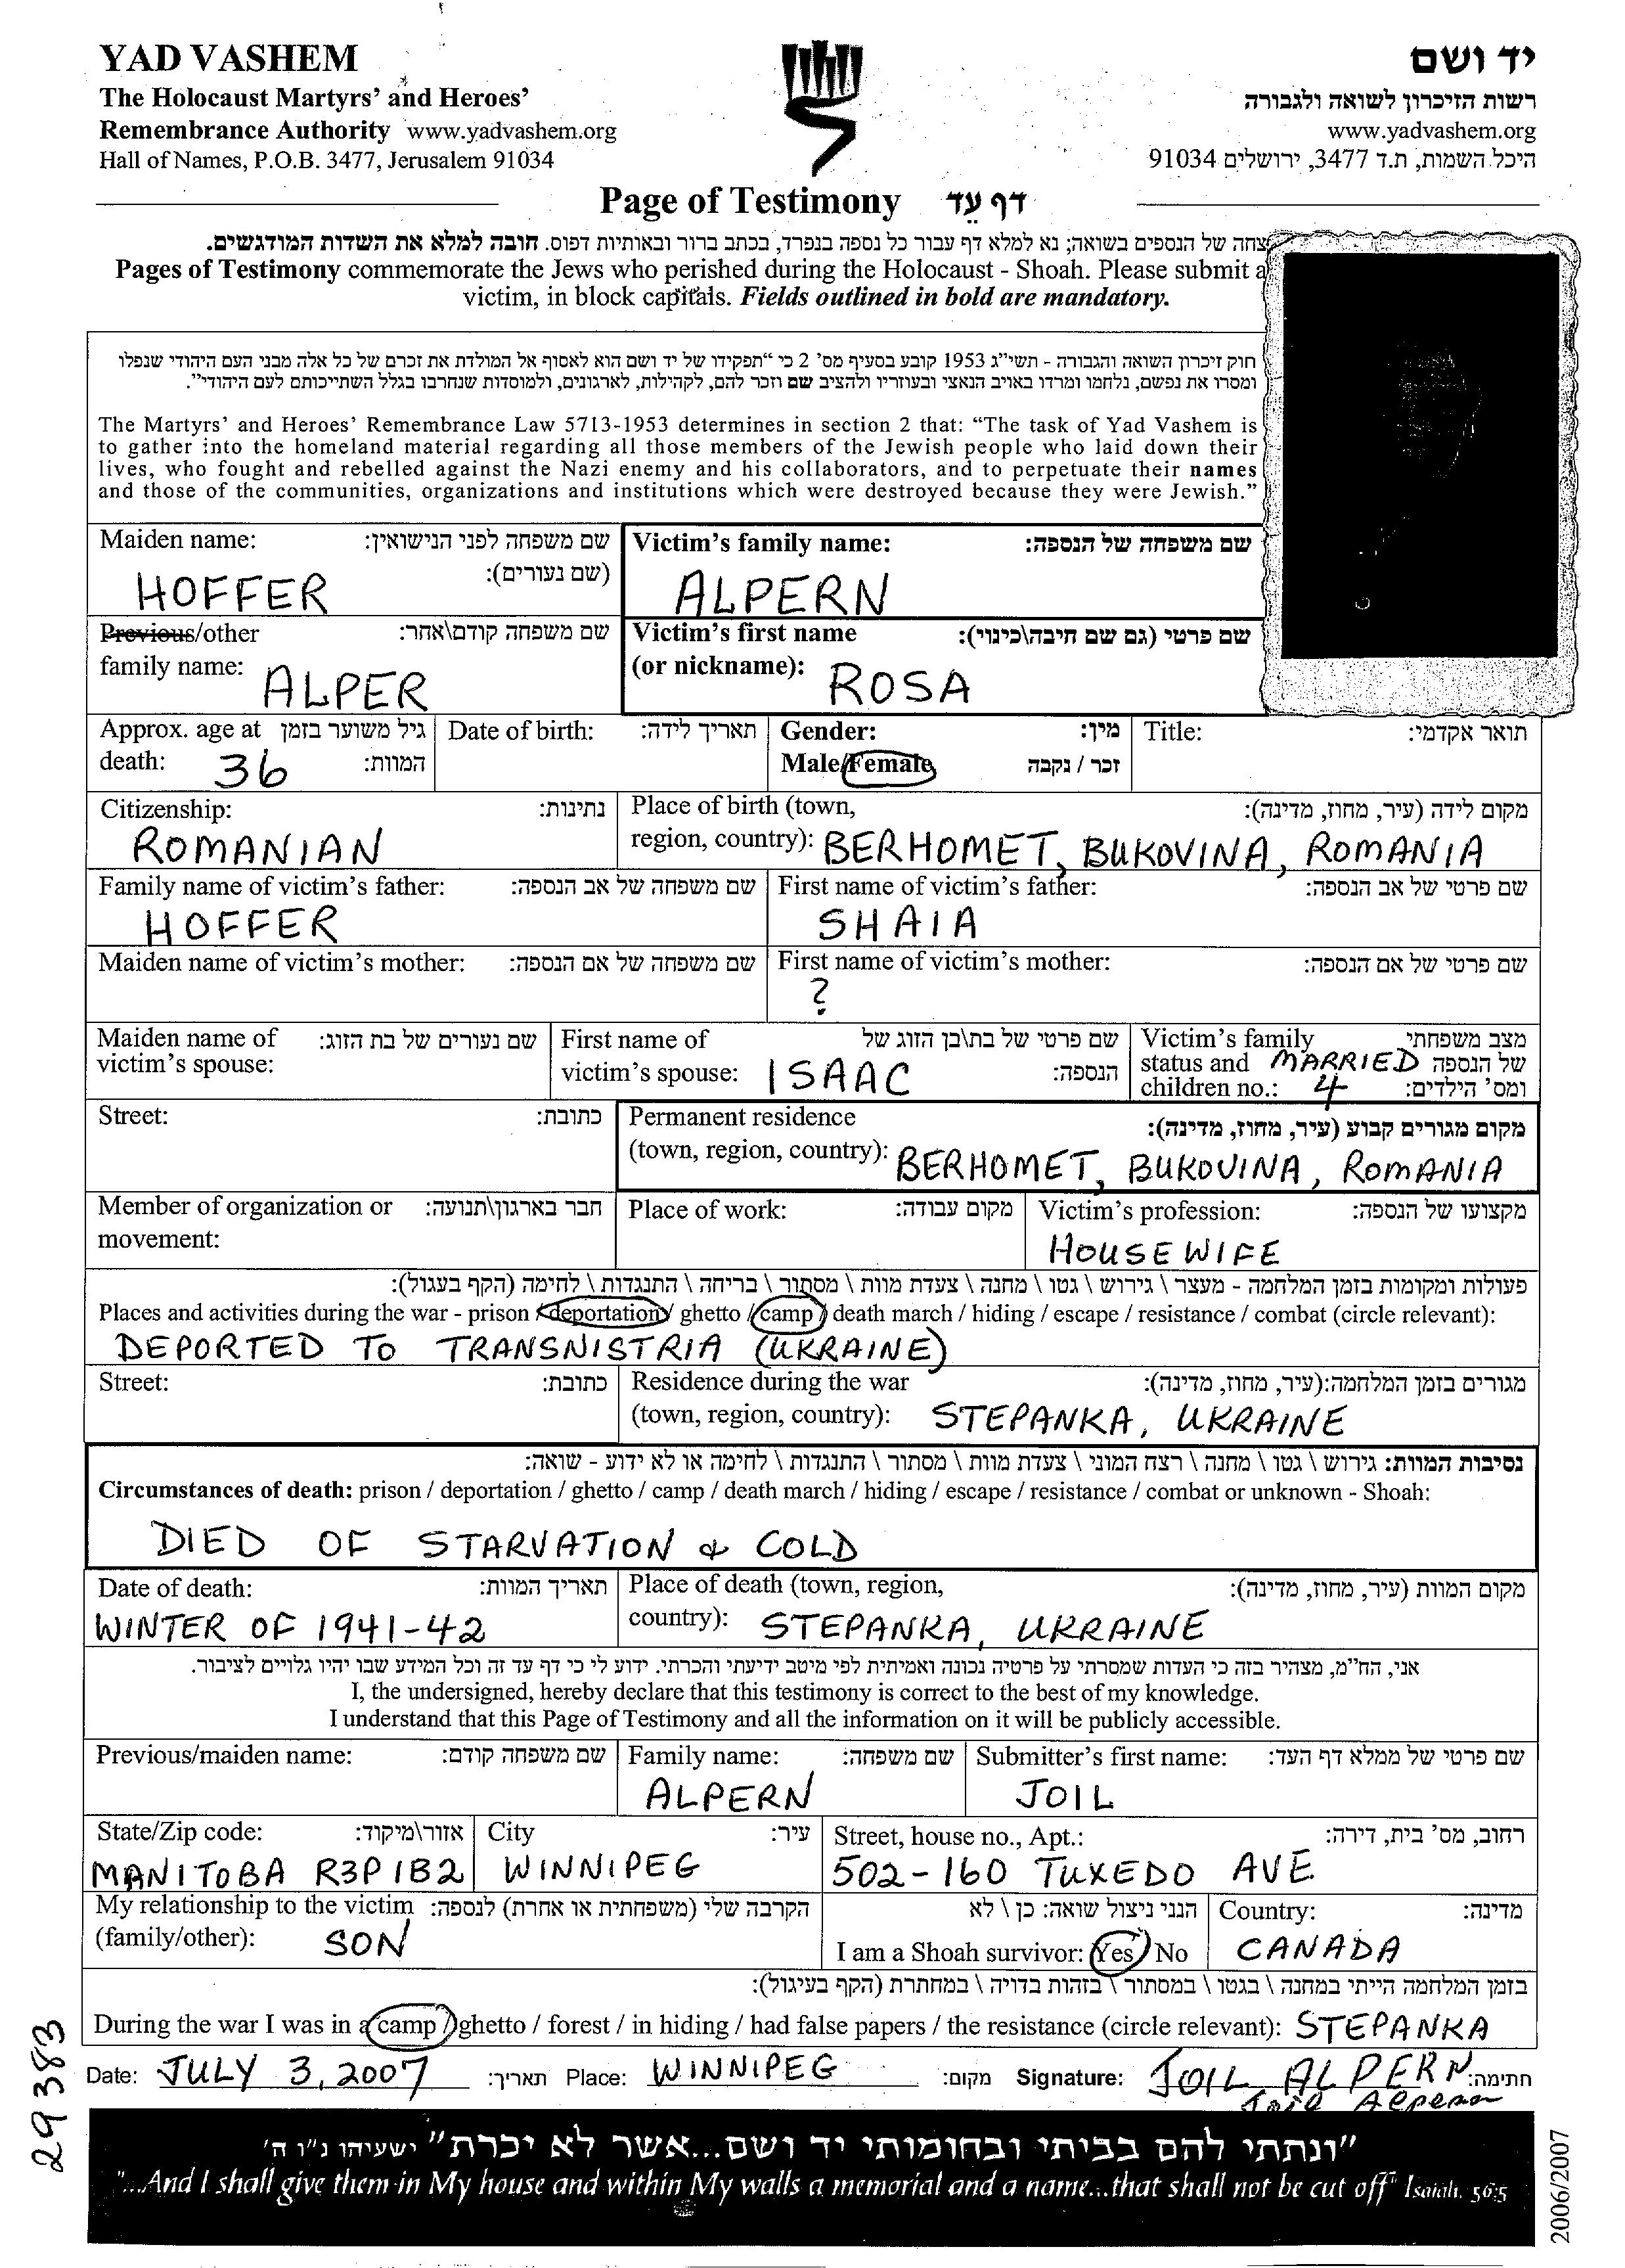 YAD VASHEM
The Holocaust Martyrs' and Heroes'
Remembrance Authority www.yadvashem.org
Hall of Names, P.O.B. 3477, Jerusalem 91034
יד ושם
רשות הזיכרון לשואה ולגבורה
www.yadvashem.org
היכל השמות, ת.ד 3477, ירושלים 91034
Page of Testimony דף עֵד
צחה של הנספים בשואה; נא למלא דף עבור כל נספה בנפרד, בכתב ברור ובאותיות דפוס. חובה למלא את השדות המודגשים.
Pages of Testimony commemorate the Jews who perished during the Holocaust - Shoah. Please submit a
victim, in block capitals. Fields outlined in bold are mandatory.
חוק זיכרון השואה והגבורה - תשי"ג 1953 קובע בסעיף מס' 2 כי "תפקידו של יד ושם הוא לאסוף אל המולדת את זכרם של כל אלה מבני העם היהודי שנפלו
ומסרו את נפשם, נלחמו ומרדו באויב הנאצי ובעוזריו ולהציב שם וזכר להם, לקהילות, לארגונים, ולמוסדות שנחרבו בגלל השתייכותם לעם היהודי".
The Martyrs' and Heroes' Remembrance Law 5713-1953 determines in section 2 that: "The task of Yad Vashem is
to gather into the homeland material regarding all those members of the Jewish people who laid down their
lives, who fought and rebelled against the Nazi enemy and his collaborators, and to perpetuate their names
and those of the communities, organizations and institutions which were destroyed because they were Jewish."
Maiden name: שם משפחה לפני הנישואין:
(שם נעורים):
HOFFER
Victim's family name: שם משפחה של הנספה:
ALPERN
Previous/other שם משפחה קודם\אחר:
family name: ALPER
Victim's first name שם פרטי (גם שם חיבה\כינוי):
(or nickname): ROSA
Approx. age at גיל משוער בזמן
death: 36 המוות:
Date of birth: תאריך לידה:
Gender: מין:
Male/Female זכר / נקבה
Title: תואר אקדמי:
Citizenship: נתינות:
ROMANIAN
Place of birth (town, מקום לידה (עיר, מחוז, מדינה):
region, country): BERHOMET, BUKOVINA, ROMANIA
Family name of victim's father: שם משפחה של אב הנספה:
HOFFER
First name of victim's father: שם פרטי של אב הנספה:
SHAIA
Maiden name of victim's mother: שם משפחה של אם הנספה:
First name of victim's mother: שם פרטי של אם הנספה:
?
Maiden name of שם נעורים של בת הזוג:
victim's spouse:
First name of שם פרטי של בת\בן הזוג של
victim's spouse: ISAAC הנספה:
Victim's family מצב משפחתי
status and MARRIED של הנספה
children no.: 4 ומס' הילדים:
Street: כתובת:
Permanent residence
מקום מגורים קבוע (עיר, מחוז, מדינה):
(town, region, country): BERHOMET, BUKOVINA, ROMANIA
Member of organization or חבר בארגון\תנועה:
movement:
Place of work: מקום עבודה:
Victim's profession: מקצועו של הנספה:
HOUSEWIFE
פעולות ומקומות בזמן המלחמה - מעצר \ גירוש \ גטו \ מחנה \ צעדת מוות \ מסתור \ בריחה \ התנגדות \ לחימה (הקף בעגול):
Places and activities during the war - prison / deportation / ghetto / camp / death march / hiding / escape / resistance / combat (circle relevant):
DEPORTED TO TRANSNISTRIA (UKRAINE)
Street: כתובת:
Residence during the war מגורים בזמן המלחמה:(עיר, מחוז, מדינה):
(town, region, country): STEPANKA, UKRAINE
נסיבות המוות: גירוש \ גטו \ מחנה \ רצח המוני \ צעדת מוות \ מסתור \ התנגדות \ לחימה או לא ידוע - שואה:
Circumstances of death: prison / deportation / ghetto / camp / death march / hiding / escape / resistance / combat or unknown - Shoah:
DIED OF STARVATION & COLD
Date of death: תאריך המוות:
WINTER OF 1941-42
Place of death (town, region, מקום המוות (עיר, מחוז, מדינה):
country): STEPANKA, UKRAINE
אני, הח"מ, מצהיר בזה כי העדות שמסרתי על פרטיה נכונה ואמיתית לפי מיטב ידיעתי והכרתי. ידוע לי כי דף עד זה וכל המידע שבו יהיו גלויים לציבור.
I, the undersigned, hereby declare that this testimony is correct to the best of my knowledge.
I understand that this Page of Testimony and all the information on it will be publicly accessible.
Previous/maiden name: שם משפחה קודם:
Family name: שם משפחה:
ALPERN
Submitter's first name: שם פרטי של ממלא דף העד:
JOIL
State/Zip code: אזור\מיקוד:
MANITOBA R3P1B2
City עיר:
WINNIPEG
Street, house no., Apt.: רחוב, מס' בית, דירה:
502-160 TUXEDO AVE
My relationship to the victim הקרבה שלי (משפחתית או אחרת) לנספה:
(family/other): SON
הנני ניצול שואה: כן \ לא
I am a Shoah survivor: Yes / No
Country: מדינה:
CANADA
בזמן המלחמה הייתי במחנה \ בגטו \ במסתור \ בזהות בדויה \ במחתרת (הקף בעיגול):
During the war I was in a camp / ghetto / forest / in hiding / had false papers / the resistance (circle relevant): STEPANKA
Date: JULY 3, 2007 תאריך: Place: WINNIPEG מקום: Signature: JOIL ALPERN חתימה:
Joil Alpern
"ונתתי להם בביתי ובחומותי יד ושם...אשר לא יכרת" ישעיהו נ"ו ה'
"...And I shall give them in My house and within My walls a memorial and a name...that shall not be cut off" Isaiah, 56:5
29383
2006/2007